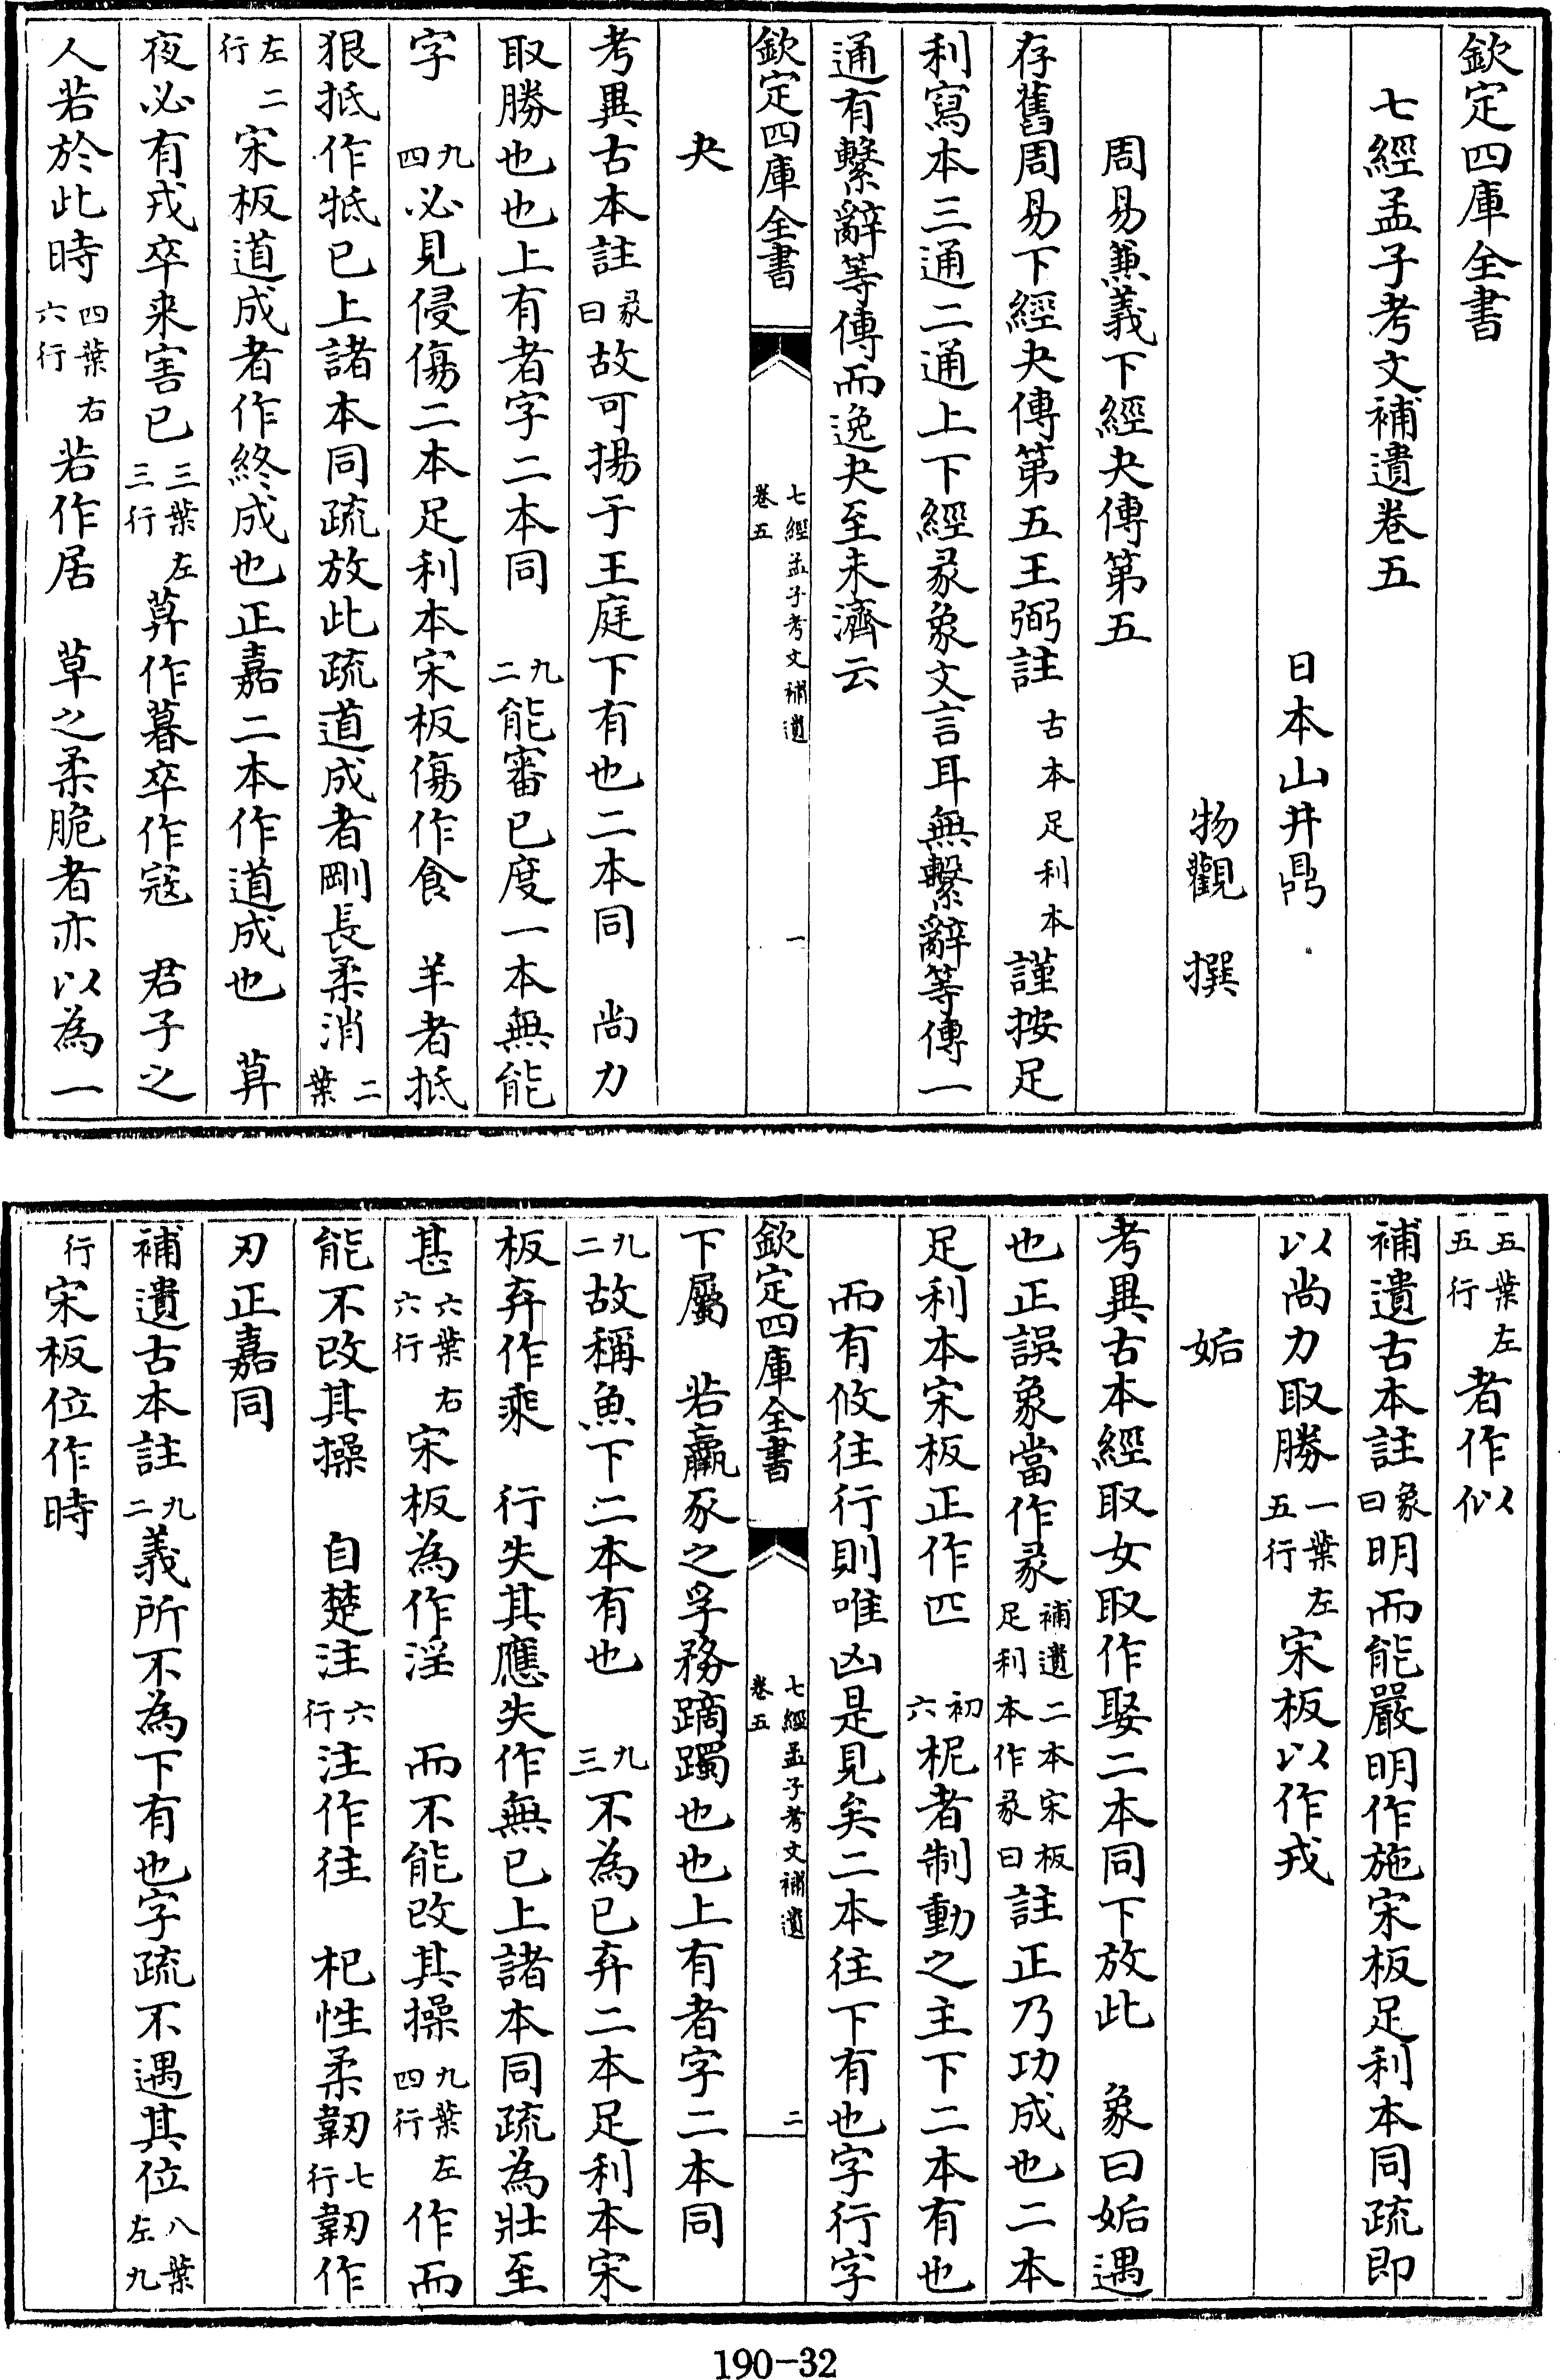 欽定四庫全書
七經孟子考文補遺卷五
日本山井鼎
物觀 撰
周易兼義下經夬傳第五
存舊周易下經夬傳第五王弼註 古本足利本 謹按足
利寫本三通二通上下經彖象文言耳無繫辭等傳一
通有繫辭等傳而逸夬至未濟云
欽定四庫全書 七經孟子考文補遺 卷五 一
夬
考異古本註 彖曰 故可揚于王庭下有也二本同 尚力
取勝也也上有者字二本同 九二 能審已度一本無能
字 九四 必見侵傷二本足利本宋板傷作食 羊者抵
狠抵作牴已上諸本同疏放此疏道成者剛長柔消 二葉
左二行 宋板道成者作終成也正嘉二本作道成也 莫
夜必有戎卒来害已 三葉左三行 莫作暮卒作寇 君子之
人若於此時 四葉右六行 若作居 草之柔脆者亦以為一
五葉左五行 者作似
補遺古本註 象曰 明而能嚴明作施宋板足利本同疏即
以尚力取勝 一葉左五行 宋板以作戎
姤
考異古本經取女取作娶二本同下放此 象曰姤遇
也正誤象當作彖 補遺二本宋板足利本作彖曰 註正乃功成也二本
足利本宋板正作匹 初六 柅者制動之主下二本有也
而有攸往行則唯凶是見矣二本往下有也字行字
欽定四庫全書 七經孟子考文補遺 卷五 二
下屬 若羸豕之孚務蹢躅也也上有者字二本同
九二 故稱魚下二本有也 九三 不為已弃二本足利本宋
板弃作乘 行失其應失作無已上諸本同疏為壯至
甚 六葉右六行 宋板為作淫 而不能改其操 九葉左四行 作而
能不改其操 自楚注 六行 注作往 杞性柔韌 七行 韌作
刃正嘉同
補遺古本註 九二 義所不為下有也字疏不遇其位 八葉左九
行 宋板位作時
190-32